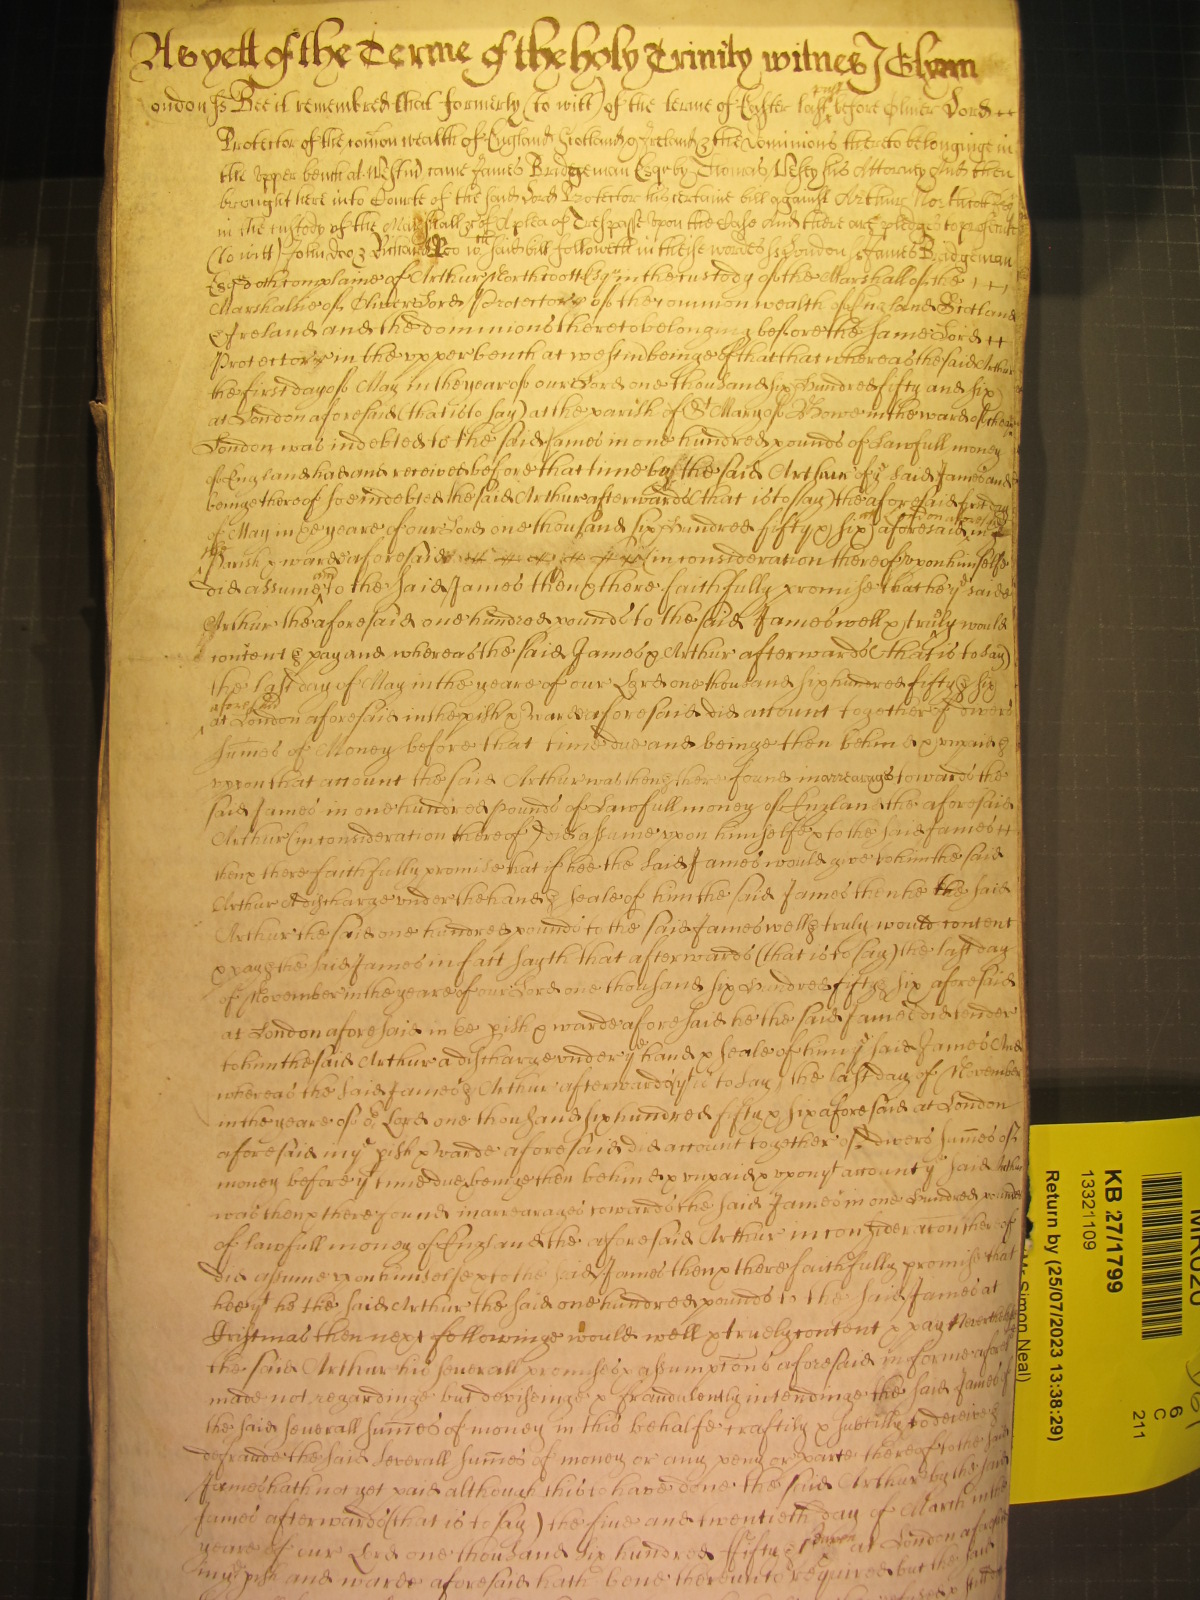 As yett of the Terme of the holy Trinity witnes J Glynn
London ss Bee it remembred that formerly (to witt) of the terme of Easter last past before Oliver Lord
Protector of the comon wealth of England Scotland & Ireland & the Dominions thereto belonginge in
the Upper bench at Westmr came James Bridgeman Esqr by Thomas Vesey his Attorney And then
brought here into Courte of the said Lord Protector his certaine bill against Arthur Northcott Esqr
in the custody of the Marshall &c of A plea of Trespasse upon the Case And there are pledges to prosecute
(to witt) John Doo & Richard Roo wch said bill followeth in these wordes ss London ss James Bridgeman
Esqr doth complaine of Arthur Northcott Esqr in the custody of the Marshall of the
Marshalsie of Oliver Lord Protector &c of the common wealth of England Scotland
& Ireland and the dominions thereto belonging before the same Lord
Protector in the upper bench at westmr beinge of that that whereas the said Arthur
the first day of May in the year of our Lord one thousand six hundred fifty and six
at London aforesaid (that is to say) at the parish of St Mary of Bowe in the ward of Cheape
London was indebted to the said James in one hundred pounds of lawfull money
of England had and received before that time by the said Arthur of ye said James and
beinge thereof soe indebted the said Arthur afterwards (that is to say) the aforesaid first day
of May in ye yeare of our Lord one thousand six hundred fifty & six aforesaid att London aforesaid in
the Parish & ward aforesaid in consideration thereof upon himselfe
did assume and to the said James then & there faithfully promise that he ye said
Arthur the aforesaid one hundred pounds to the said James well & truly would
content & pay and whereas the said James & Arthur afterwards (that is to say)
the last day of May in the yeare of our Lord one thousand six hundred fifty & six
aforesaid at London aforesaid in the pish & Ward aforesaid did account together of divers
summes of Money before that time due and beinge then behind & unpaid &
upon that account the said Arthur was then & there found in arrearages towards the
said James in one hundred pounds of Lawfull money of England the aforesaid
Arthur (in consideration thereof) did assume upon himselfe & to the said James
then & there faithfully promise that if hee the said James would give to him the said
Arthur A discharge under the hand & seale of him the said James then he the said
Arthur the said one hundred pounds to the said James well & truly would content
& pay & the said James in fact sayth that afterwards (that is to say) the last day
of November in the yeare of our Lord one thousand six hundred fifty & six aforesaid
at London aforesaid in ye pish & warde aforesaid he the said James did tender
to him the said Arthur a discharge under ye hand & seale of him ye said James And
whereas the said James & Arthur afterwards (yt is to say) the last day of November
in the yeare of or Lord one thousand six hundred fifty & six aforesaid at London
aforesaid in ye pish & warde aforesaid did account together of divers summes of
money before yt time due & beinge then behind & unpaid & upon yt account ye said Arthur
was then & there found in arrearages towards the said James in one hundred pounds
of lawfull money of England the aforesaid Arthur in consideracon thereof
did assume upon himselfe & to the said James then & there faithfully promise that
hee ye he the said Arthur the said one hundred pounds to the said James at
Cristmas then next followinge would well & truely content & pay Neverthelesse
the said Arthur his severall promises & assumptons aforesaid in forme aforesd
made not regardinge but deviseinge & fraudulently intendinge the said James of
the said severall summes of money in this behalfe craftily & subtilly to deceive &
defraude the said severall summes of money or any peny or parte thereof to the said
James hath not yet paid although this to have done the said Arthur by the said
James afterwards (that is to say) the five and twentieth day of March in the
yeare of our Lord one thousand six hundred fifty & seaven at London aforesaid
in ye pish and warde aforesaid hath bene thereunto required but the said
KB 27/1799
13321109
Return by (25/07/2023 13:38:29)
Simon Neal)
6
C
211